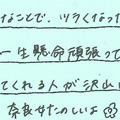 なことで、ツラくなった
一生懸命頑張って
てくれる人が沢山い
奈良せたのしいよ